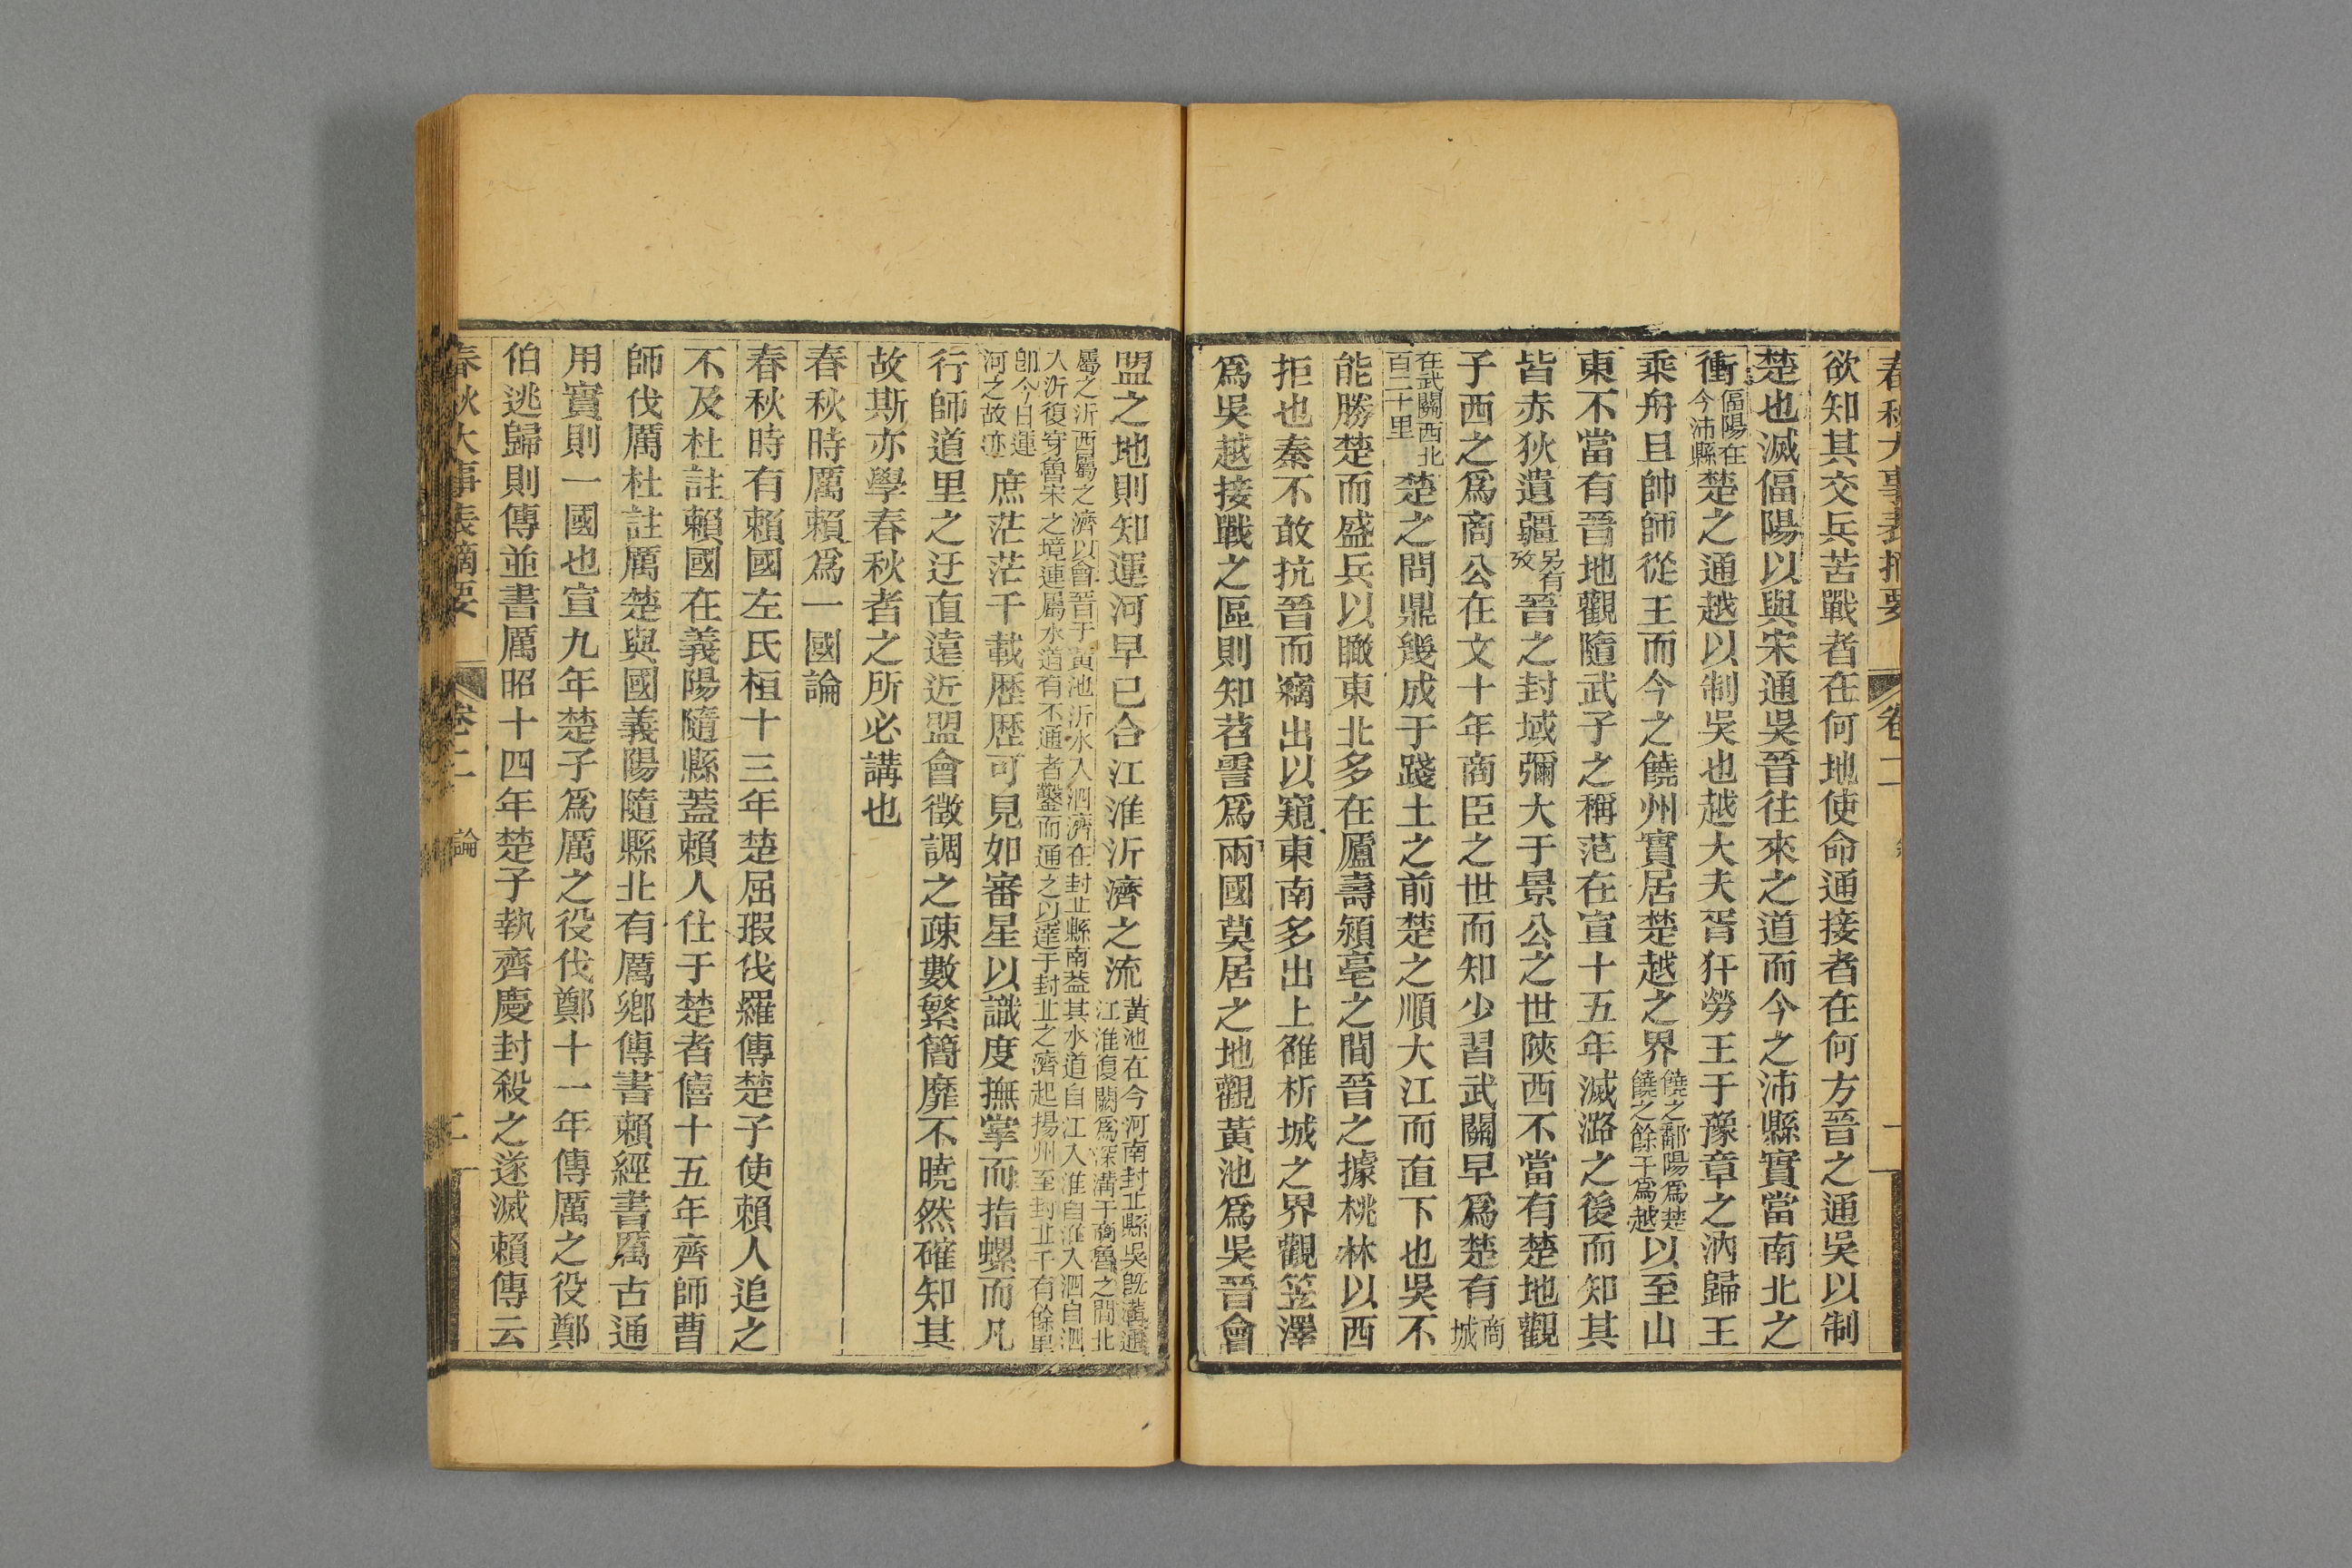 春秋大事表摘要 卷二
欲知其交兵苦戰者在何地使命通接者在何方晉之通吳以制
楚也滅偪陽以與宋通吳晉往來之道而今之沛縣實當南北之
衝偪陽在今沛縣楚之通越以制吳也越大夫胥犴勞王于豫章之汭歸王
乘舟且帥師從王而今之饒州實居楚越之界饒之鄱陽爲楚饒之餘干爲越以至山
東不當有晉地觀隨武子之稱范在宣十五年滅潞之後而知其
皆赤狄遺疆另有攷晉之封域彌大于景公之世陝西不當有楚地觀
子西之爲商公在文十年商臣之世而知少習武關早爲楚有商城
在武關西北百二十里楚之問鼎幾成于踐土之前楚之順大江而直下也吳不
能勝楚而盛兵以瞰東北多在廬壽潁亳之間晉之據桃林以西
拒也秦不敢抗晉而竊出以窺東南多出上雒析城之界觀笠澤
爲吳越接戰之區則知苕霅爲兩國莫居之地觀黃池爲吳晉會
盟之地則知運河早已合江淮沂濟之流黃池在今河南封丘縣吳旣溝通江淮復闕爲深溝于商魯之間北
屬之沂西屬之濟以會晉于黃池沂水入泗濟在封丘縣南葢其水道自江入淮自淮入泗自泗入沂復穿魯宋之境連屬水道有不通者鑿而通之以達于封丘之濟起揚州至封丘千有餘里
卽今日運河之故迹庶茫茫千載歷歷可見如審星以識度撫掌而指螺而凡
行師道里之迂直遠近盟會徵調之疎數繁簡靡不曉然確知其
故斯亦學春秋者之所必講也
春秋時厲賴爲一國論
春秋時有賴國左氏桓十三年楚屈瑕伐羅傳楚子使賴人追之
不及杜註賴國在義陽隨縣蓋賴人仕于楚者僖十五年齊師曹
師伐厲杜註厲楚與國義陽隨縣北有厲鄉傳書賴經書厲古通
用實則一國也宣九年楚子爲厲之役伐鄭十一年傳厲之役鄭
伯逃歸則傳並書厲昭十四年楚子執齊慶封殺之遂滅賴傳云
春秋大事表摘要 卷二 論 二